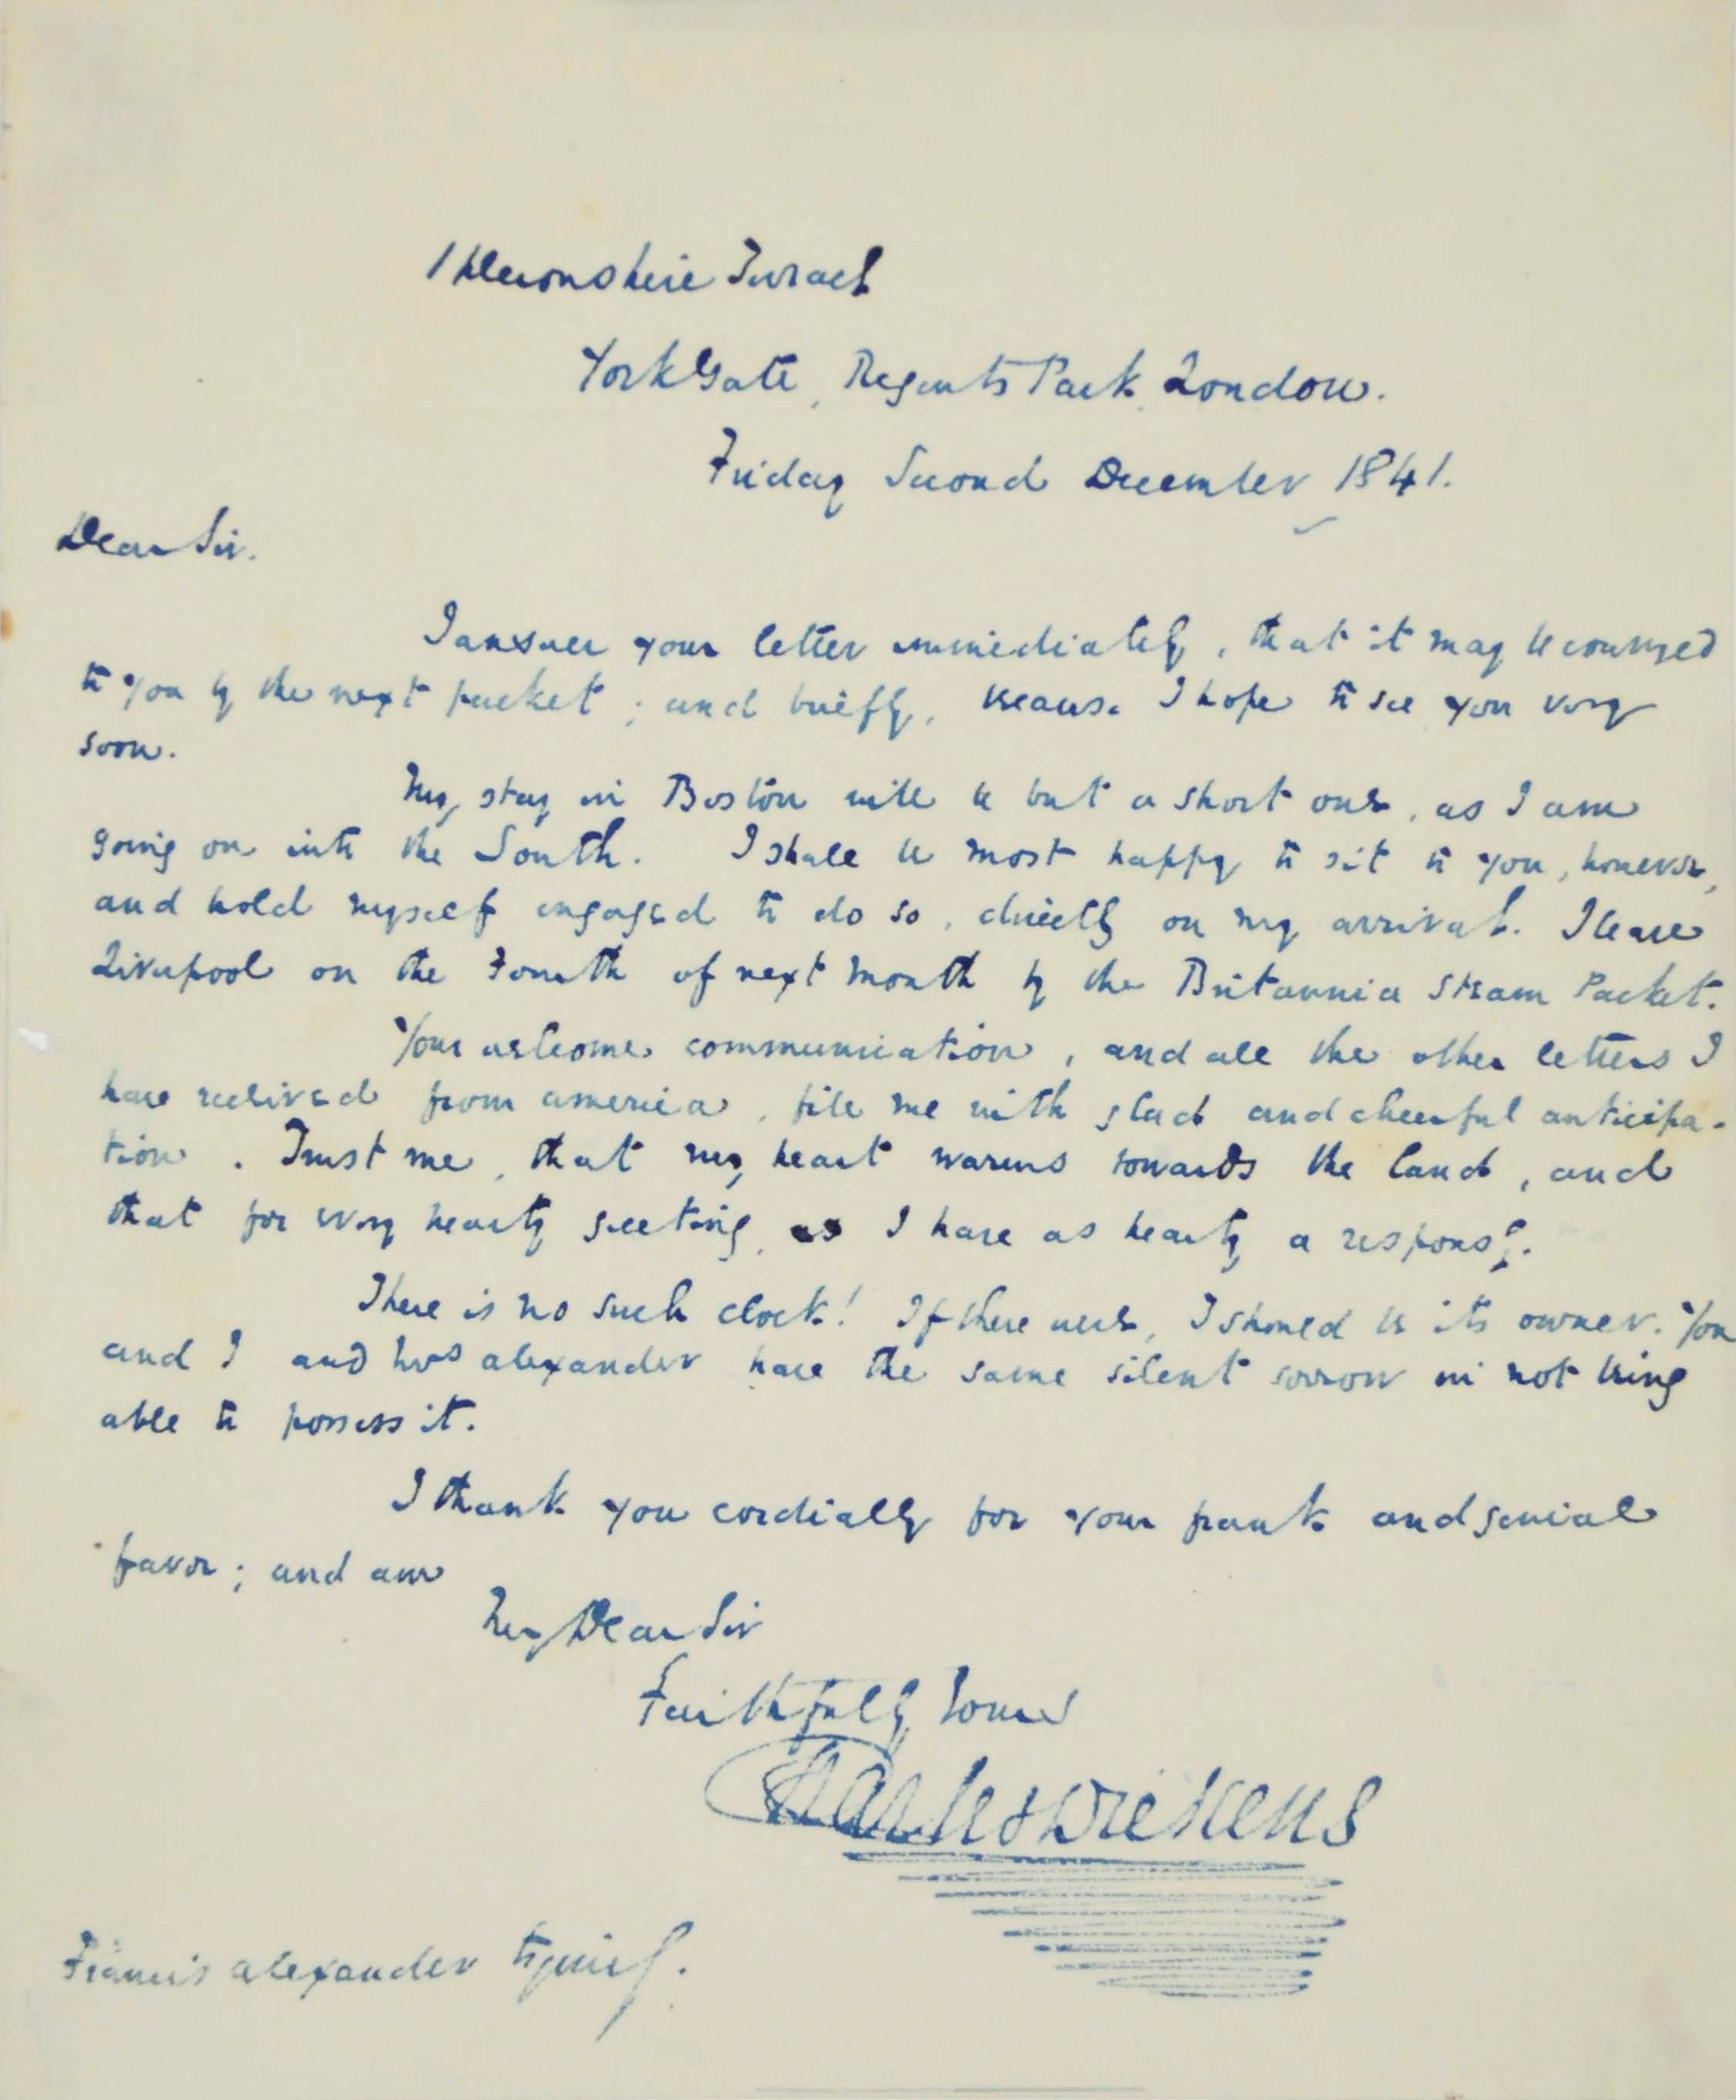 1 Devonshire Terrace
York Gate, Regents Park London.
Friday Second December 1841.
Dear Sir.
I answer your letter immediately, that it may be conveyed
to you by the next packet; and briefly, because I hope to see you very
soon.
My stay in Boston will be but a short one, as I am
going on into the South. I shall be most happy to sit to you, however,
and hold myself engaged to do so, directly on my arrival. I leave
Liverpool on the Fourth of next month by the Britannia Steam Packet.
Your welcome communication, and all the other letters I
have received from America, fill me with glad and cheerful anticipa-
tion. Trust me, that my heart warms towards the land, and
that for every hearty greeting, I have as hearty a response.
There is no such clock! If there were, I should be its owner. You
and I and Mrs Alexander have the same silent sorrow in not being
able to possess it.
I thank you cordially for your frank and genial
favor; and am
My Dear Sir
Faithfully Yours
Charles Dickens
Francis Alexander Esquire.